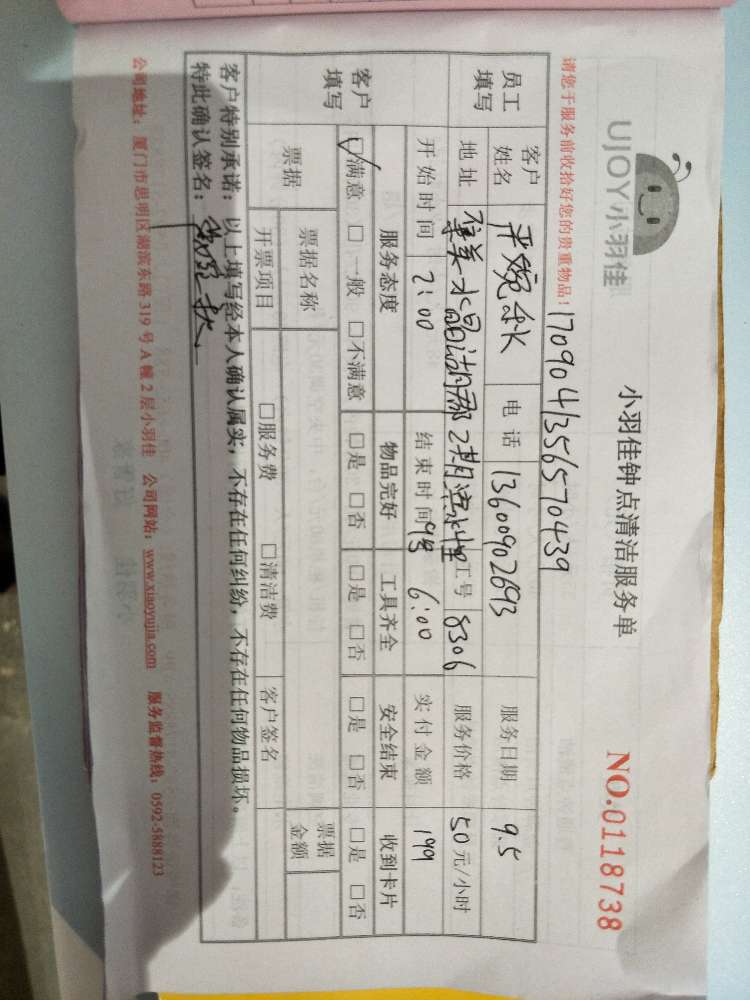 UJOY小羽佳
小羽佳钟点清洁服务单
NO.0118738
请您于服务前收拾好您的贵重物品!
1709041356570439
员工填写 客户姓名 电话 13600902693 服务日期 9.5
地址 集美水晶湖郡2期 工号 8306 服务价格 50元/小时
开始时间 2:00 结束时间 6:00 实付金额 199
客户填写 服务态度 物品完好 工具齐全 安全结束 收到卡片
☑满意 □一般 □不满意 □是 □否 □是 □否 □是 □否 □是 □否
票据 票据名称 票据金额
开票项目 □服务费 □清洁费 客户签名
客户特别承诺:以上填写经本人确认属实,不存在任何纠纷,不存在任何物品损坏。
特此确认签名:
公司地址:厦门市思明区湖滨东路319号A幢2层小羽佳 公司网站:www.xiaoyujia.com 服务监督热线:0592-5888123